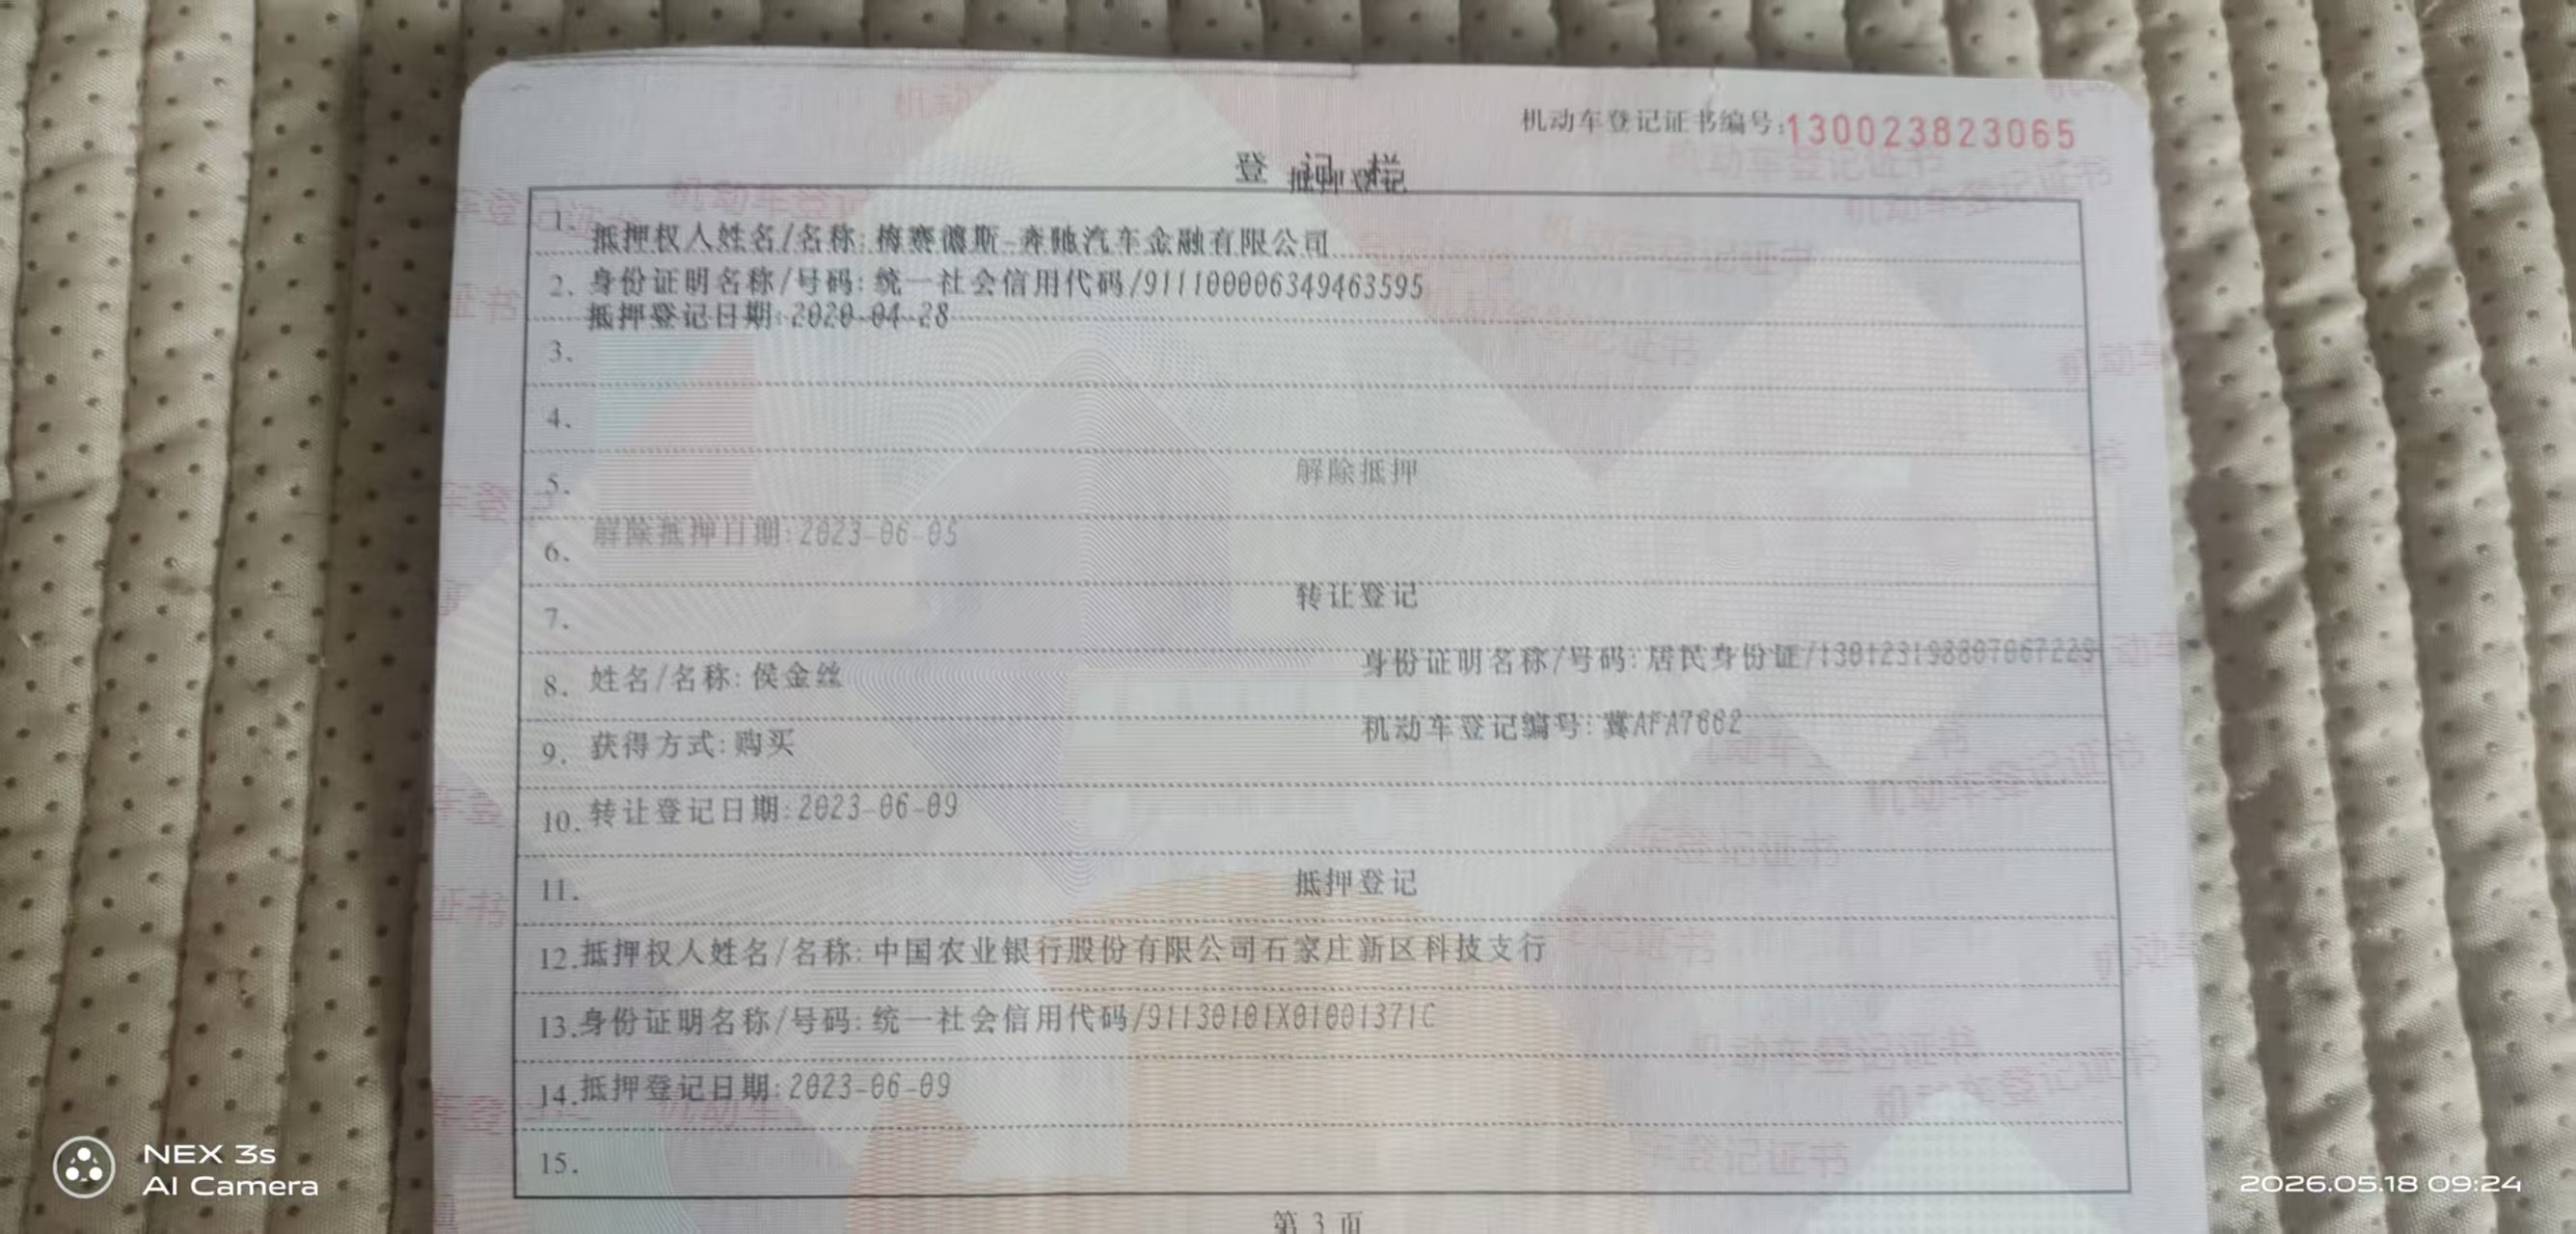 机动车登记证书编号:130023823065
登 记 栏
抵押登记
1. 抵押权人姓名/名称:梅赛德斯-奔驰汽车金融有限公司
2. 身份证明名称/号码:统一社会信用代码/911100006349463595
抵押登记日期:2020-04-28
3.
4.
5. 解除抵押
6. 解除抵押日期:2023-06-05
7. 转让登记
8. 姓名/名称:侯金丝 身份证明名称/号码:居民身份证/
9. 获得方式:购买 机动车登记编号:冀AFA7662
10. 转让登记日期:2023-06-09
11. 抵押登记
12. 抵押权人姓名/名称:中国农业银行股份有限公司石家庄新区科技支行
13. 身份证明名称/号码:统一社会信用代码/91130101X01001371C
14. 抵押登记日期:2023-06-09
15.
第 3 页
NEX 3s
AI Camera
2026.05.18 09:24